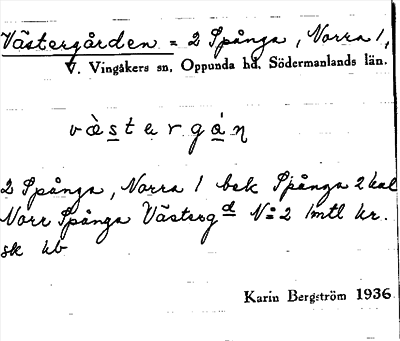 Västergården = 2 Spånga, Norra 1,
V. Vingåkers sn, Oppunda hd, Södermanlands län.
vàstargán
2 Spånga, Norra 1 bek Spånga 2 kal
Norr Spånga Västergd N:2 1mtl kr.
sk kb
Karin Bergström 1936